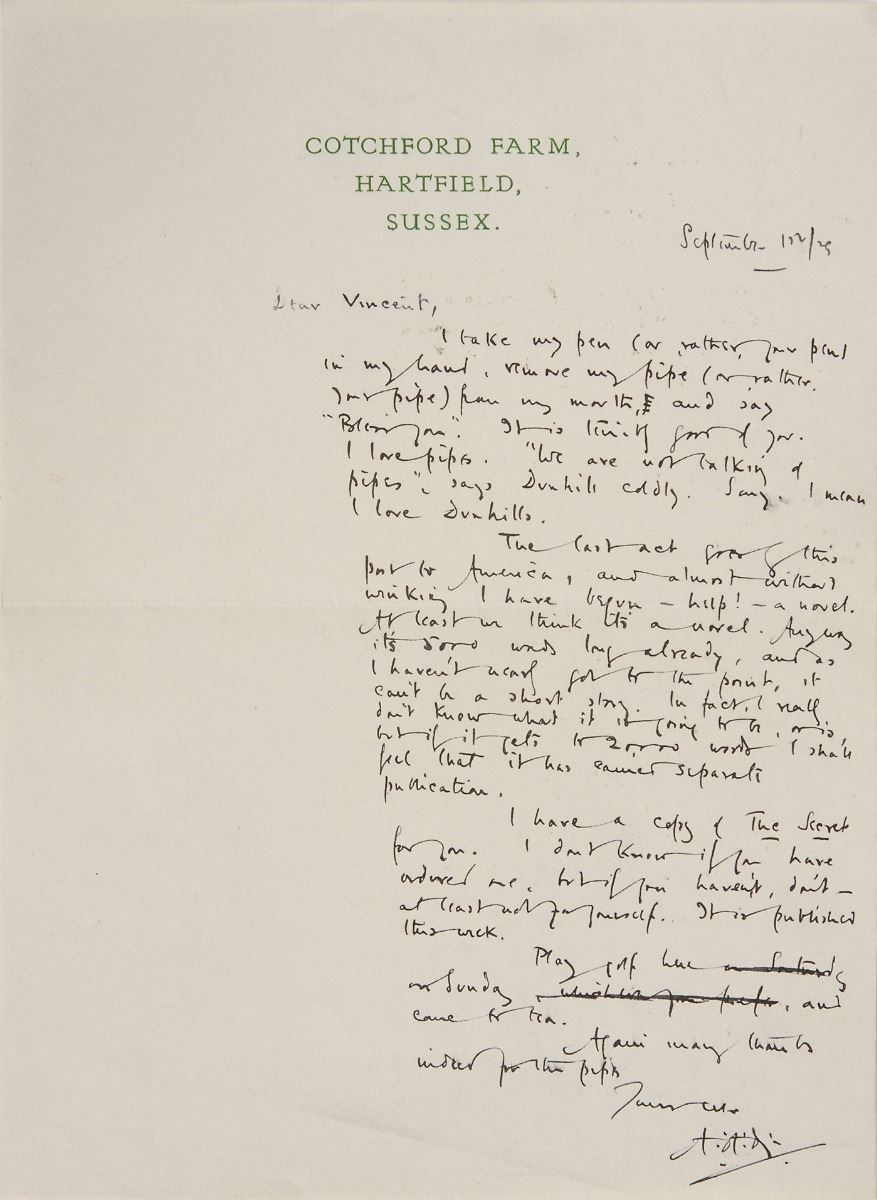 COTCHFORD FARM,
HARTFIELD,
SUSSEX.
September
Dear Vincent,
I take my pen (or, rather, your pen)
in my hand, remove my pipe (or rather,
your pipe) from my mouth, and say
"Bless you". It is kind of you.
I love pipes. "We are not talking of
pipes", says Dunhill coldly. Sorry. I mean
I love Dunhills.
The last act goes by this
post to America, and almost without
winking I have begun — help! — a novel.
At least we think it's a novel. Anyway
it's 5000 words long already, and as
I haven't nearly got to the point, it
can't be a short story. In fact, I really
don't know what it is going to be, or is,
but if it gets to 20,000 words I shall
feel that it has earned separate
publication.
I have a copy of The Secret
for you. I don't know if you have
ordered one, but if you haven't, don't —
at least not for yourself. It is published
this week.
Play golf here on Saturday
on Sunday, whichever you prefer, and
come to tea.
Again many thanks
indeed for the pipes
Yours ever